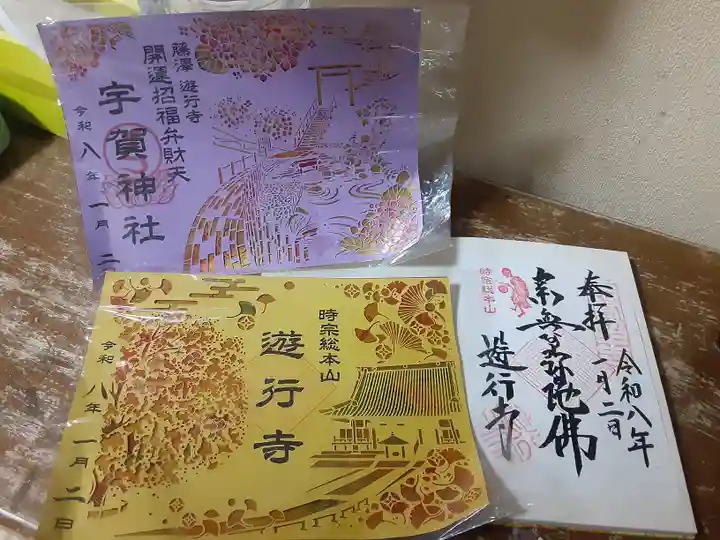 藤澤 遊行寺
開運招福弁財天
宇賀神社
令和八年一月二
時宗総本山
遊行寺
令和八年一月二日
奉拝
令和八年
一月二日
南無阿弥陀佛
遊行寺
時宗総本山